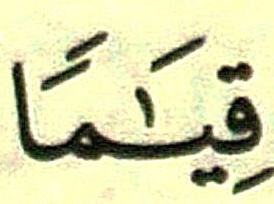 قِيَٰمًا